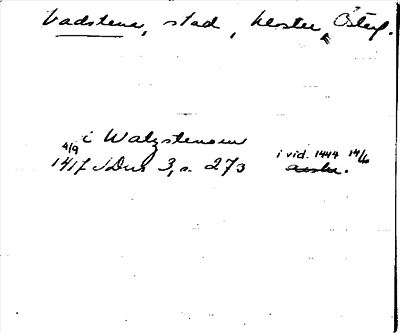 Vadstena, stad, kloster, Östg.
i Watzstenom
4/9
1417 SDns 3, s. 273 i vid. 1444 14/6
avskr.